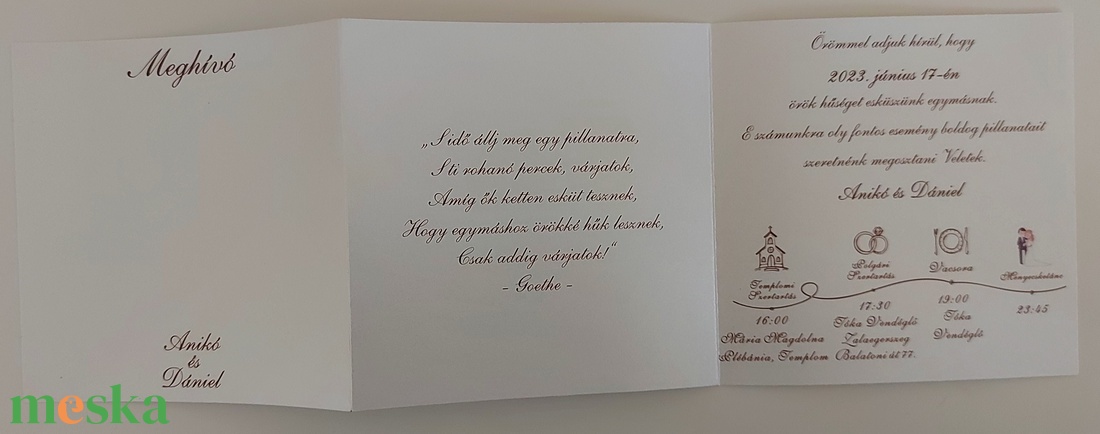 Meghívó
Anikó
és
Dániel
„S idő állj meg egy pillanatra,
S ti rohanó percek, várjatok,
Amíg ők ketten esküt tesznek,
Hogy egymáshoz örökké hűk lesznek,
Csak addig várjatok!“
- Goethe -
Örömmel adjuk hírül, hogy
2023. június 17-én
örök hűséget esküszünk egymásnak.
E számunkra oly fontos esemény boldog pillanatait
szeretnénk megosztani Veletek.
Anikó és Dániel
Templomi
Szertartás
16:00
Mária Magdolna
Plébánia, Templom
Polgári
Szertartás
17:30
Tóka Vendéglő
Zalaegerszeg
Balatoni út 77.
Vacsora
19:00
Tóka
Vendéglő
Menyecsketánc
23:45
meska